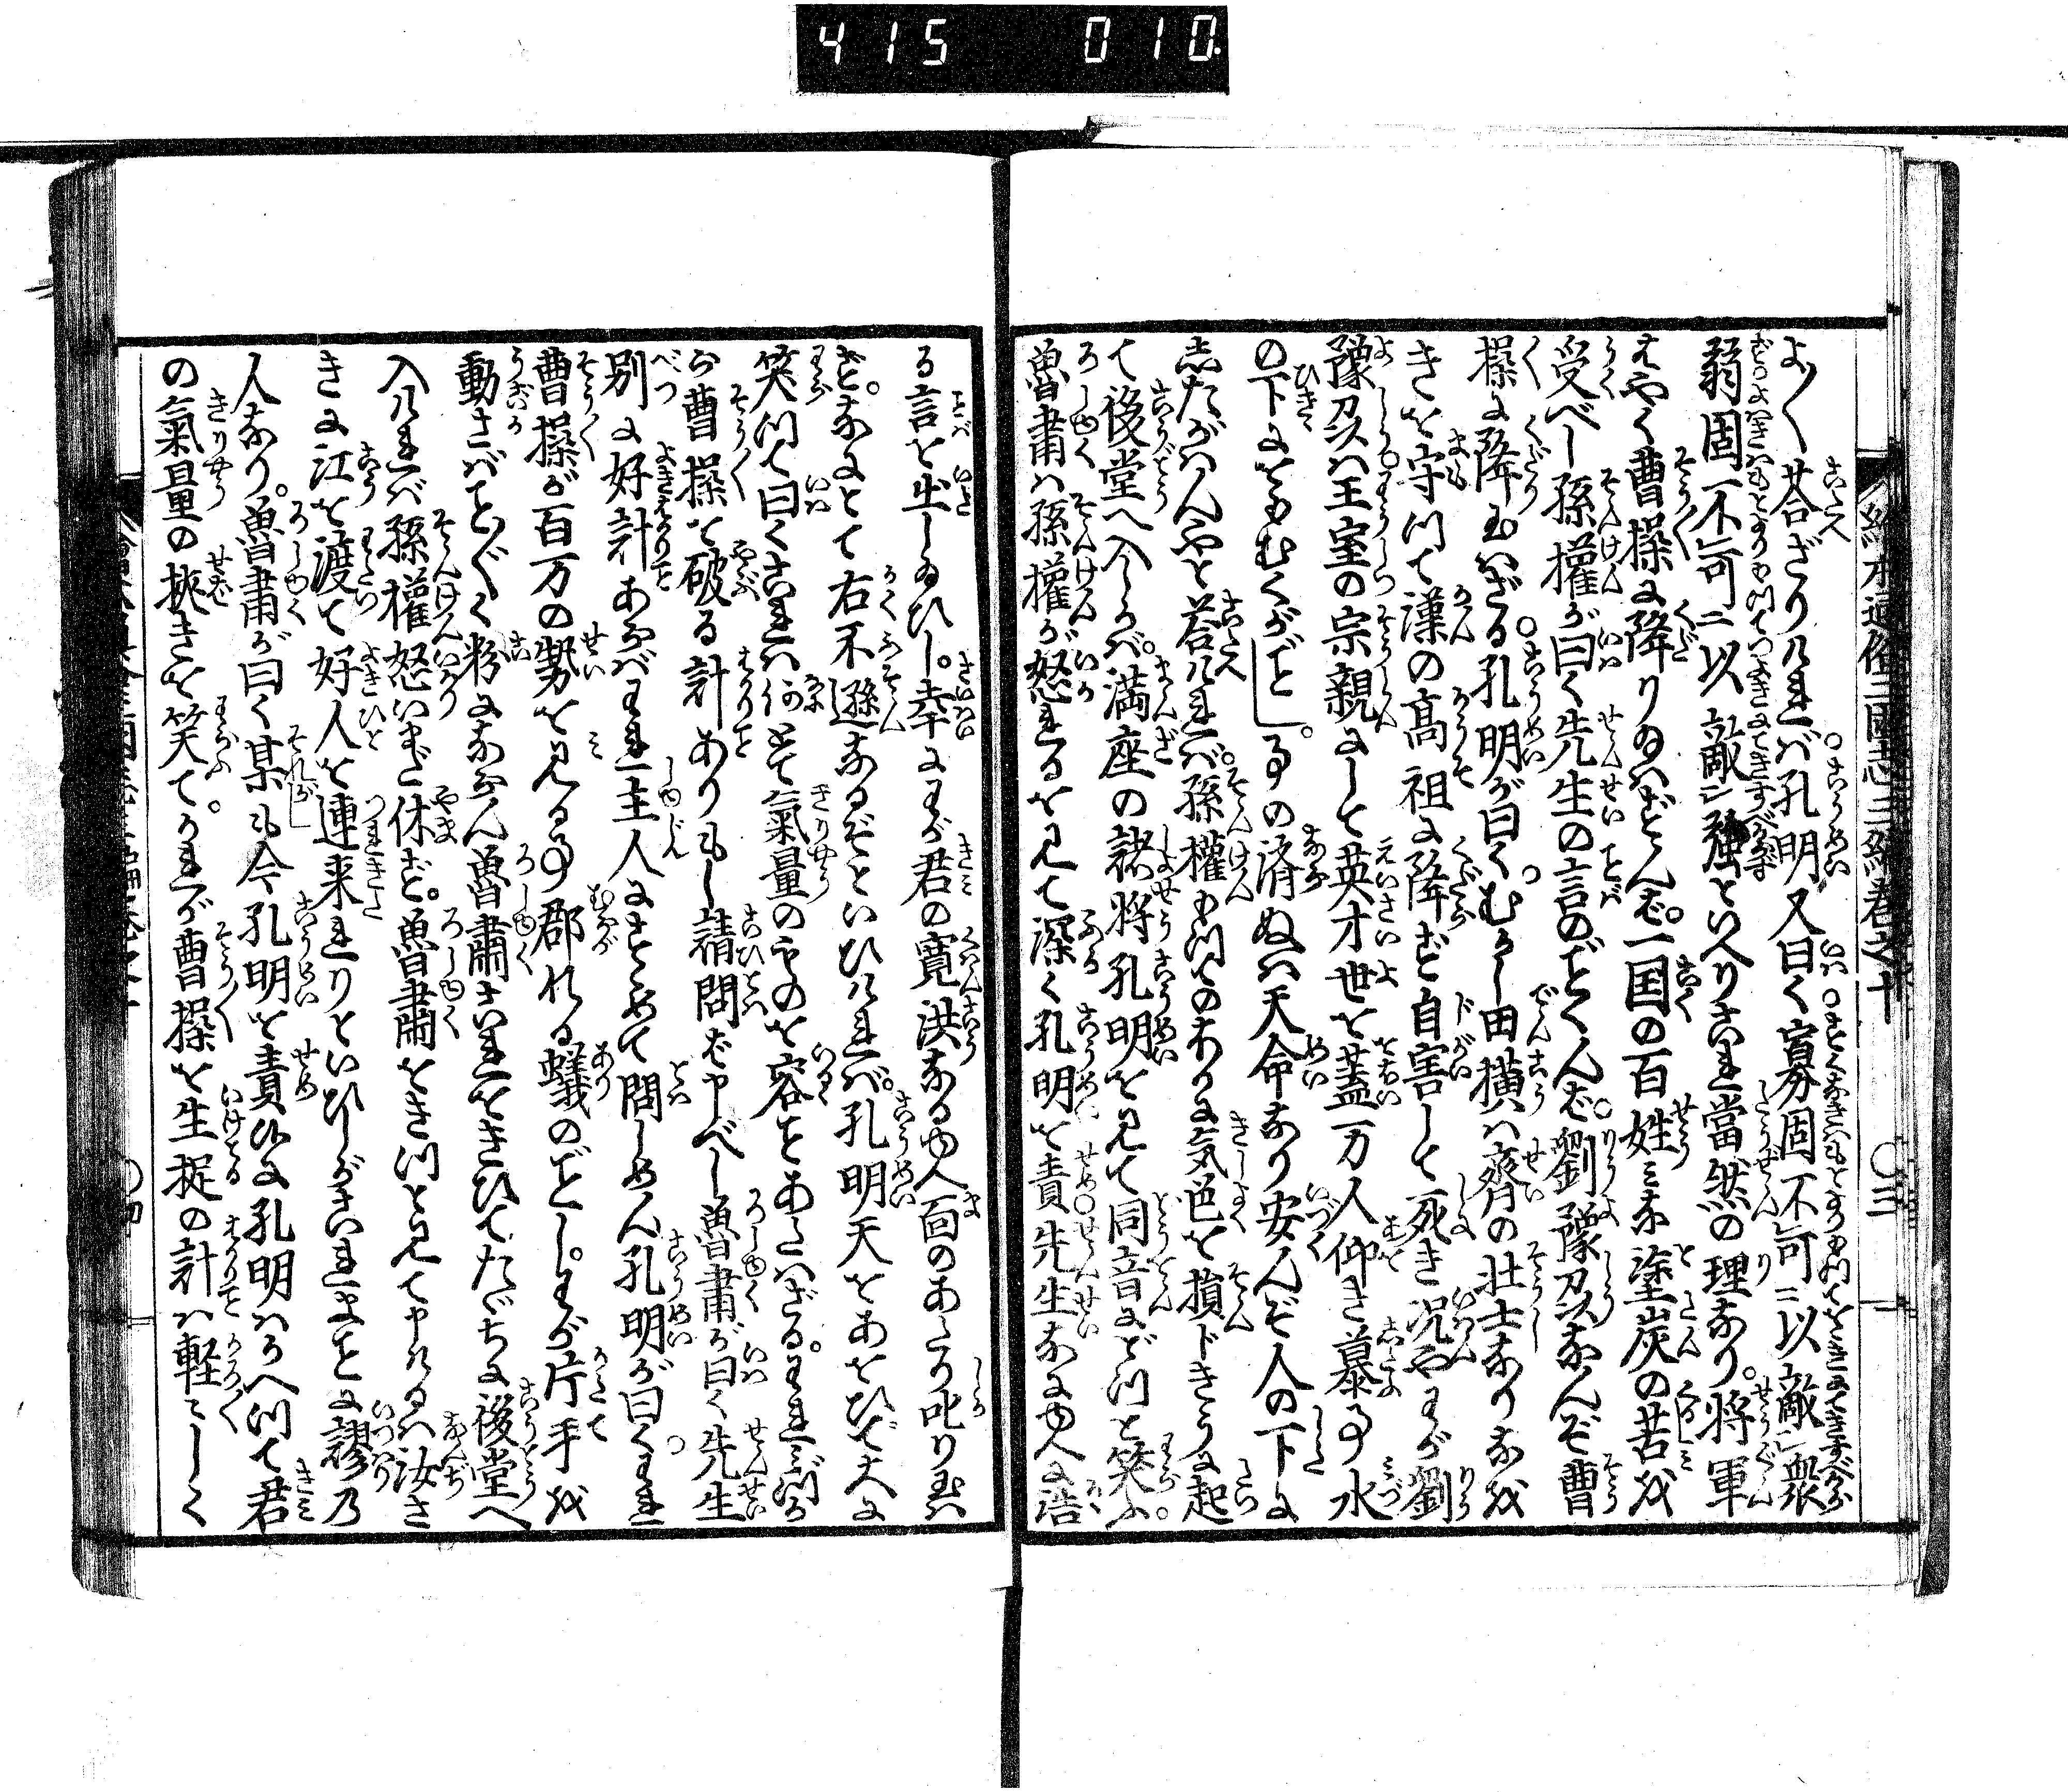 415 010
絵本通俗三國志三編巻之十 〇三
よく〳〵荅ざりければ孔明又曰く寡固不可以敵衆
弱固不可以敵強といへりこれ當然の理なり。将軍
はやく曹操に降り玉はずんば。一国の百姓ミな塗炭の苦を
受べし孫權が曰く先生の言のごとくんば。劉豫州なんぞ曹
操に降玉はざる孔明が曰く。むかし田横は齊の壮士なりなを
きを守つて漢の高祖に降ず自害して死き况やわが劉
豫州ハ王室の宗親にして英才世を蓋万人仰き慕事水
の下にをもむくがごとし。事の済ぬは天命なり安んぞ人の下に
したがはんやと荅ければ。孫權もつてのほかに気色を損じきうに起
て後堂へ入しかば。満座の諸将孔明を見て同音にどつと笑ふ。
魯肅ハ孫權が怒れるを見て深く孔明を責先生なにゆへに浩
る言を出し玉ひし。幸にわが君の寛洪なるゆへ面のあたり叱り玉は
ず。なにとて右不遜なるぞといひければ。孔明天をあをひで大に
笑つて曰くこれハ何とて氣量のものを容をあたはざる。われミづか
ら曹操を破る計ありもし請問ば申べし魯肅が曰く先生
別に好計あらばわれ主人にすゝめて問しめん孔明が曰くわれ
曹操が百万の勢を見る事郡れる蟻のごとし。わが片手を
動さばこと〴〵く粉にならん魯肅これをきひてたゞちに後堂へ
入ければ孫權怒いまだ休ず。魯肅をきつと見て申けるハ汝さ
きに江を渡て好人を連来れりといひしがこれまことに謬乃
人なり。魯肅が曰く某も今孔明を責ひに孔明ハかへつて君
の氣量の挾きを笑て。かれが曹操を生捉の計ハ軽〳〵しく